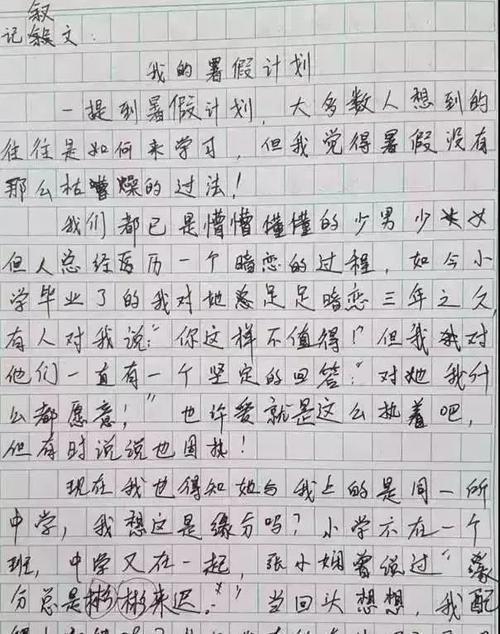 叙
记叙文：
我的暑假计划
一提到暑假计划，大多数人想到的
往往是如何来学习，但我觉得暑假没有
那么枯燥的过法！
我们都已是懵懵懂懂的少男少女
但人总经历一个暗恋的过程，如今小
学毕业了的我对她总足足暗恋三年之久
有人对我说：“你这样不值得！”但我对
他们一直有一个坚定的回答：“对她我什
么都愿意！”也许爱就是这么执着吧，
但有时说说也固执！
现在我也得知她与我上的是同一所
中学，我想这是缘分吗？小学不在一个
班，中学又在一起，张小娴曾说过“缘
分总是彬彬来迟。”当回头想想，我配